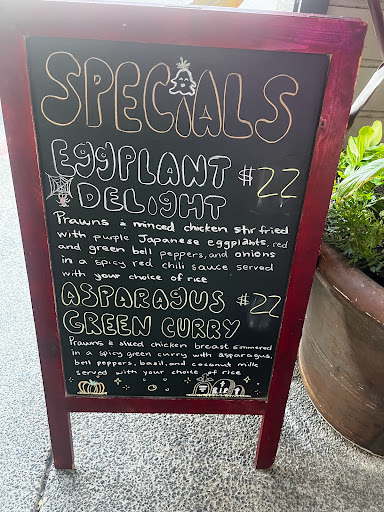 SPECIALS
EGGPLANT $22
DELIGHT
Prawns & minced chicken stir fried
with purple Japanese eggplants, red
and green bell peppers, and onions
in a spicy red chili sauce served
with your choice of rice
ASPARAGUS $22
GREEN CURRY
Prawns & sliced chicken breast simmered
in a spicy green curry with asparagus,
bell peppers, basil, and coconut milk
served with your choice of rice